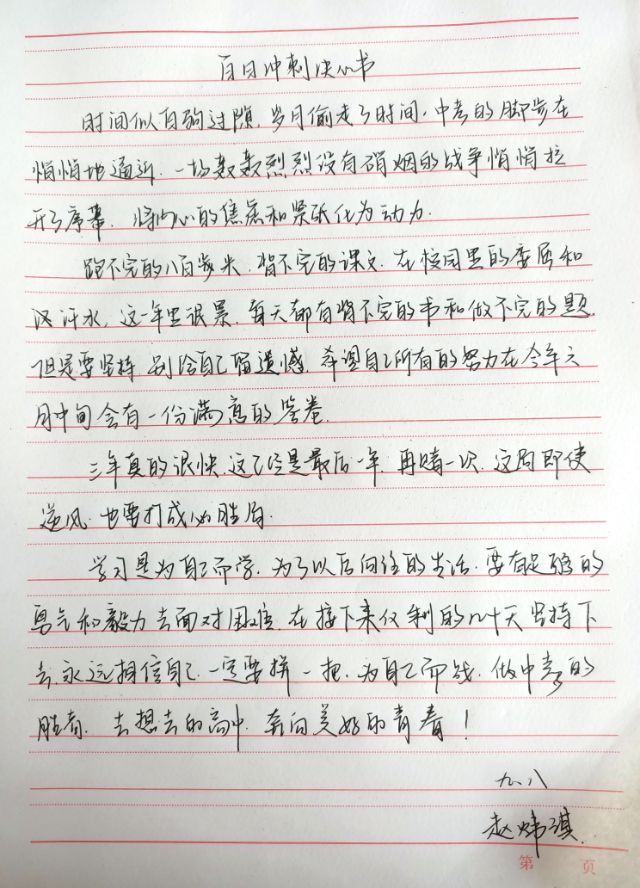 百日冲刺决心书
时间似白驹过隙，岁月偷走了时间，中考的脚步在
悄悄地逼近，一场轰轰烈烈没有硝烟的战争悄悄拉
开了序幕，将内心的焦虑和紧张化为动力。
跑不完的八百米，背不完的课文，在校园里的委屈和
泪汗水，这一年里很累，每天都有背不完的书和做不完的题
但是要坚持，别给自己留遗憾，希望自己所有的努力在今年六
月中旬会有一份满意的答卷。
三年真的很快，这已经是最后一年，再赌一次，这局即使
逆风，也要打成必胜局。
学习是为自己而学，为了以后向往的生活，要有足够的
勇气和毅力去面对困难，在接下来仅剩的几十天坚持下
去，永远相信自己，一定要拼一把，为自己而战，做中考的
胜者，去想去的高中，奔向美好的青春！
九.八
赵炜琪
第 页